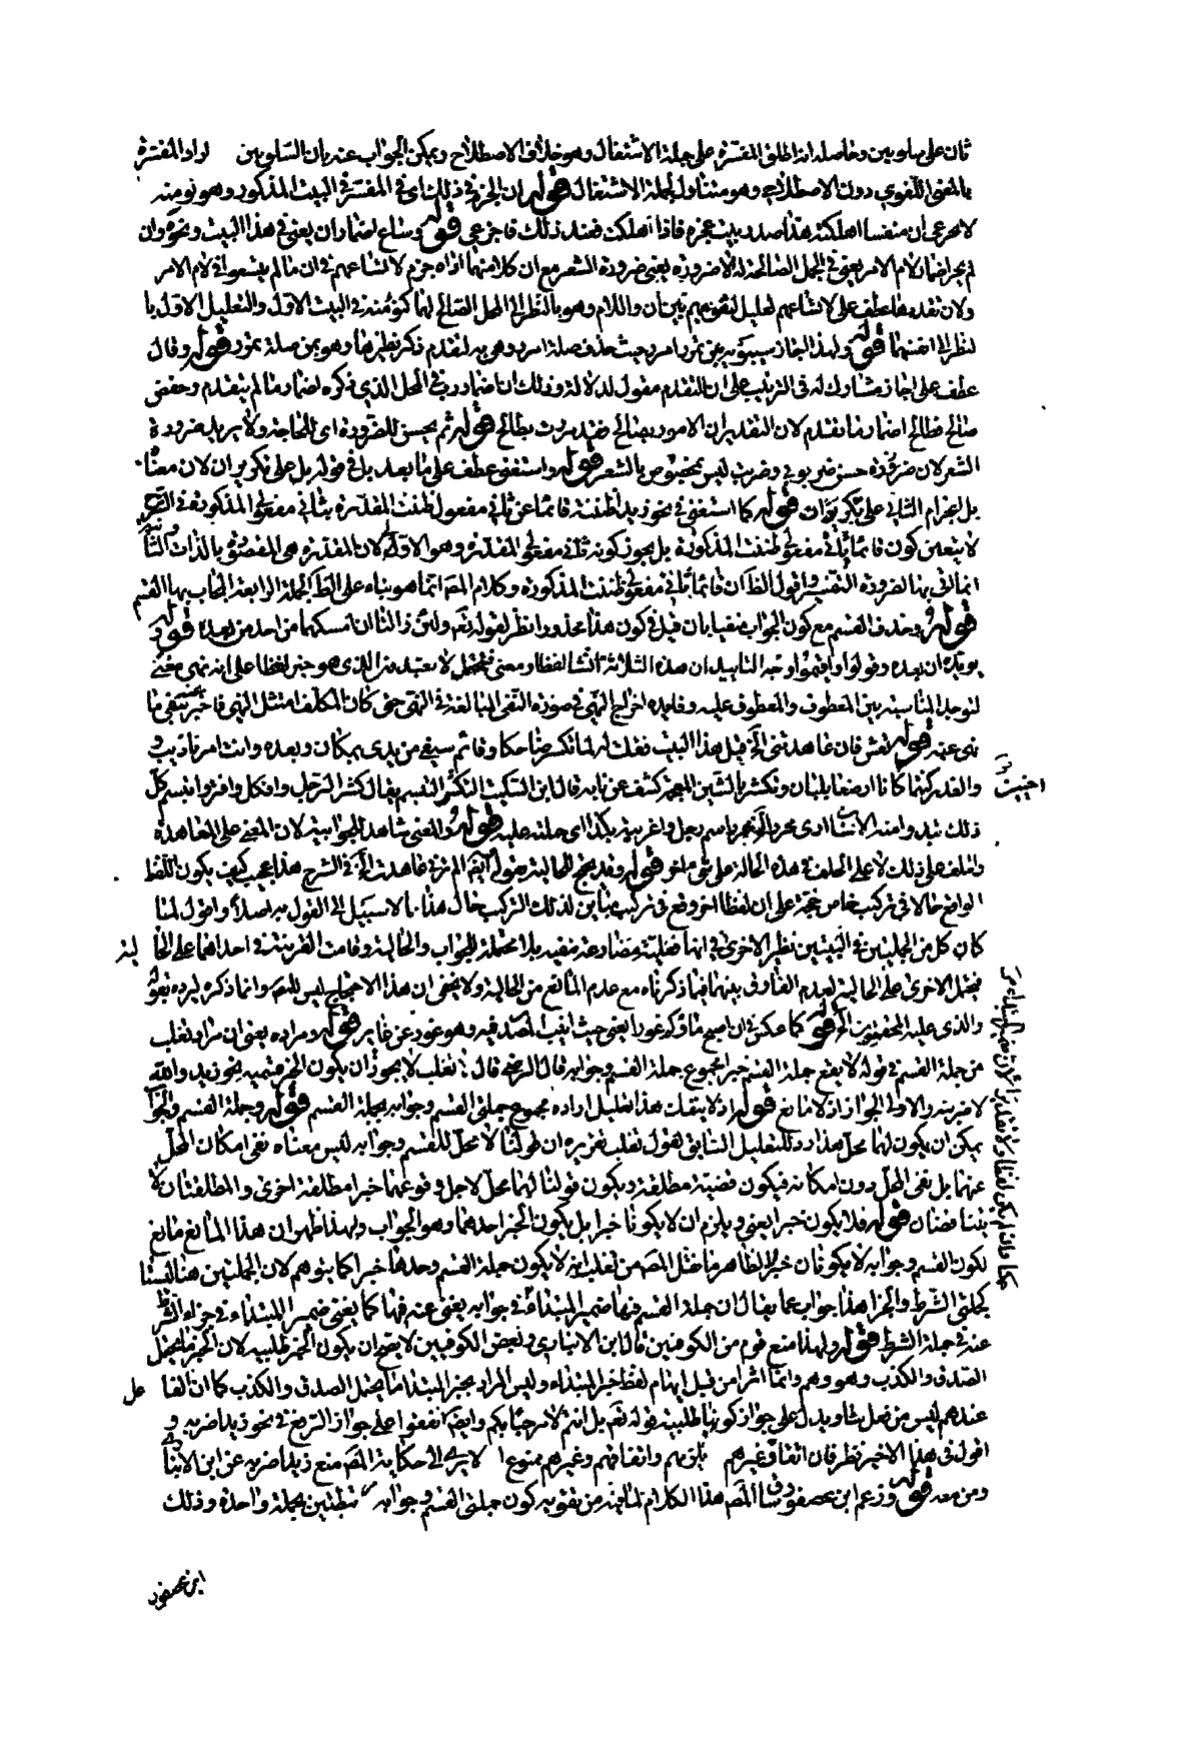 ثان على شلوبين وحاصله انه اطلق المفسرة على جملة الاشتغال وهو خلاف الاصطلاح ويمكن الجواب عنه بان الشلوبين اراد المفسرة
بالمعنى اللغوي دون الاصطلاحي وهو متناول لجملة الاشتغال قوله ان الجزم في ذلك اي في المفسر في البيت المذكور وهو نومنه
لا تجزعي ان منفسا اهلكته هذا صدر بيت عجزه فاذا هلكت فعند ذلك فاجزعي قوله وساغ اضمار ان يعني في هذا البيت ونحوه وان
لم يجز اضمار لام الامر يعني في الجمل الصالحة له الا ضرورة يعني ضرورة الشعر مع ان كلا منهما اداة جزم لاتساعهم في ان ما لم يتسعوا في لام الامر
ولان تقدمها عطف على لاتساعهم تعليل لتقويهم بين ان واللام وهو بالنظر الى المحل الصالح لها كونه في البيت الاول والتعليل الاول با
لنظر الى انفسهما قوله ولهذا اجاز سيبويه بمن تمرر امرر حيث حذف صلة امرر وهو به لتقدم ذكر نظيرها وهو بمن صلة تمرر قوله وقال
عطف على اجاز مشارك له في الترتيب على ان التقدم مقول لدلالة وذلك ان اضمار رب في المحل الذي ذكره اضمار ما لم يتقدم وخفض
صالح فطالح اضمار ما تقدم لان التقدير ان لا امرر بصالح فقد مررت بطالح قوله ثم يحسن للضرورة اي للحاجة ولا يريد ضرورة
الشعر لان ضرورة حسن ضربوني وضربت ليس بمخصوص بالشعر قوله واستغنى عطف على ما بعد بل في قوله بل على تكرير ان لان معناه
بل انجزام الثاني على تكرير ان قوله كما استغنى في نحو زيد اظننته قائما عن ثاني مفعولي ظننت المقدرة بثاني مفعولي المذكورة في الشرح
لا يتعين كون قائما ثاني مفعولي ظننت المذكورة بل يجوز كونه ثاني مفعولي المقدرة وهو الاولى لان المقدرة هي المقصودة بالذات والثانية
انما اتى بها لضرورة التفسير واقول الظ ان قائما ثاني مفعولي ظننت المذكورة وكلام المص انما هو بناه على الظ الجملة الرابعة المجاب بها القسم
قوله وحذف القسم مع كون الجواب منفيا بان قيل في كون هذا محذور انظر لقوله تعالى ولئن زالتا ان امسكهما من احد من بعده قوله
لتوجد المناسبة بين المعطوف والمعطوف عليه وفايدة اخراج النهي في صورة النفي المبالغة في النهي حتى كان المكلف امتثل النهي فاخبر عنه بنفي ما
نهى عنه قوله تعش فان عاهدتني الخ قبل هذا البيت فقلت له لما تكشر ضاحكا وقائم سيفي من يدي بمكان وبعده وانت امرؤ يا ذيب و
والغدر كنتما كانا ارضعا بلبان وتكشر بالشين المعجمة كشف عن نابه قال ابن السكيت الكشر التبسم يقال كشر الرجل وافتر وابتسم كل
احييت
ذلك تبدو منه الاسنان
واتلف على ذلك لا على الحلف في هذه الحالة على شيء اخر قوله وقد يحتج للحالية بقوله ايضا الم ترني عاهدت الخ في الشرح هذا عجيب كيف يكون اللفظ
الواقع حالا في تركيب خاص حجة على ان لفظا اخر وقع في تركيب مباين لذلك التركيب حال هذا ما لا سبيل الى القول به اصلا واقول لما
كان كل من الجملتين في البيتين نظير الاخرى في انها فعلية مضارعة منفية بلا محتملة للجواب والحالية وقامت القرينة في احداهما على الحا لية
فتحمل الاخرى على الحالية لعدم الفارق بينهما فيما ذكرناه مع عدم المانع من الحالية ولا يخفى ان هذا الاحتجاج ليس للمص وانما ذكره ليرده بقو
والذي عليه المحققون الخ قوله كما عكس في ان اصبح ماؤكم غورا يعني حيث انيب المصدر فيه وهو غور عن غاير قوله ومراده يعني ان مراد ثعلب
من جملة القسم في قوله لا يقع جملة القسم خبرا مجموع جملة القسم وجوابه قال الرضي قال ثعلب لا يجوز ان يكون الخبر قسمية نحو زيد والله
لاضربنه والاولى الجواز اذ لا مانع قوله اذ لا ينفك هذا تعليل اراده مجموع جملتي القسم وجوابه بجملة القسم قوله وجملة القسم والجوا
يمكن ان يكون لهما محل هذا رد للتعليل السابق لقول ثعلب تقريره ان قولنا لا محل للقسم وجوابه ليس معناه نفي امكان المحل
عنهما بل نفي المحل دون امكانه فيكون قضية مطلقة ويكون قولنا لهما محل لاجل وقوعهما خبرا مطلقة اخرى والمطلقتان لا
يتناقضان قوله فلا يكون خبرا يعني ويلزم ان لا يكونا خبرا بل يكون الخبر احدهما وهو الجواب ولهذا ظهر ان هذا المانع مانع
لكون القسم وجوابه لا يكونان خبرا لظاهر ما نقل المص من ثعلب انه لا يكون جملة القسم وحدها خبرا كما يتوهم لان الجملتين هنا ليستا
كجملتي الشرط والجزا هذا جواب عما يقال ان جملة القسم فيها ضمير المبتداء في جوابه يغني عنه فيها كما يغني ضمير المبتداء في جزاء الشرط
عنه في جملة الشرط قوله ولهذا منع قوم من الكوفيين قال ابن الانباري وبعض الكوفيين لا يصح ان يكون الخبر طلبيه لان الخبر ما يحتمل
الصدق والكذب وهو وهم وانما اثر من قبل ايهام لفظ خبر المبتداء وليس المراد بخبر المبتدا ما يحتمل الصدق والكذب كما ان الفا عل
عندهم ليس من فعل شا ويدل على جواز كونها طلبية قوله تعالى بل انتم لا مرحبا بكم وايضا اتفقوا على جواز الرفع في نحو زيد اضربه و
اقول في هذا الاخير نظر فان اتفاق غيرهم يلزمهم واتفاقهم وغيرهم ممنوع الا يرى الى حكاية المص منع زيد اضربه عن ابن الانبا
ري ومن معه قوله وزعم ابن عصفور ساق المص هذا الكلام لما فيه من تقويه كون جملتي القسم وجوابه منبطتين بجملة واحدة وذلك
ابن عصفور